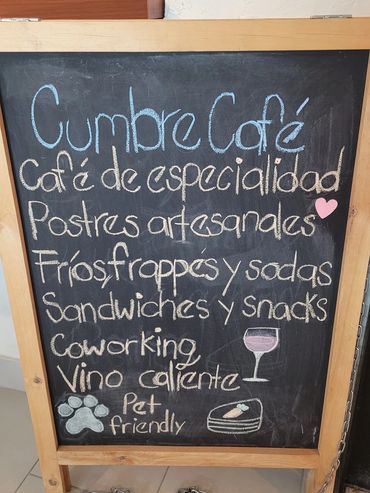 Cumbre Café
Café de especialidad
Postres artesanales
Fríos, frappés y sodas
Sandwiches y snacks
Coworking
Vino caliente
Pet
friendly